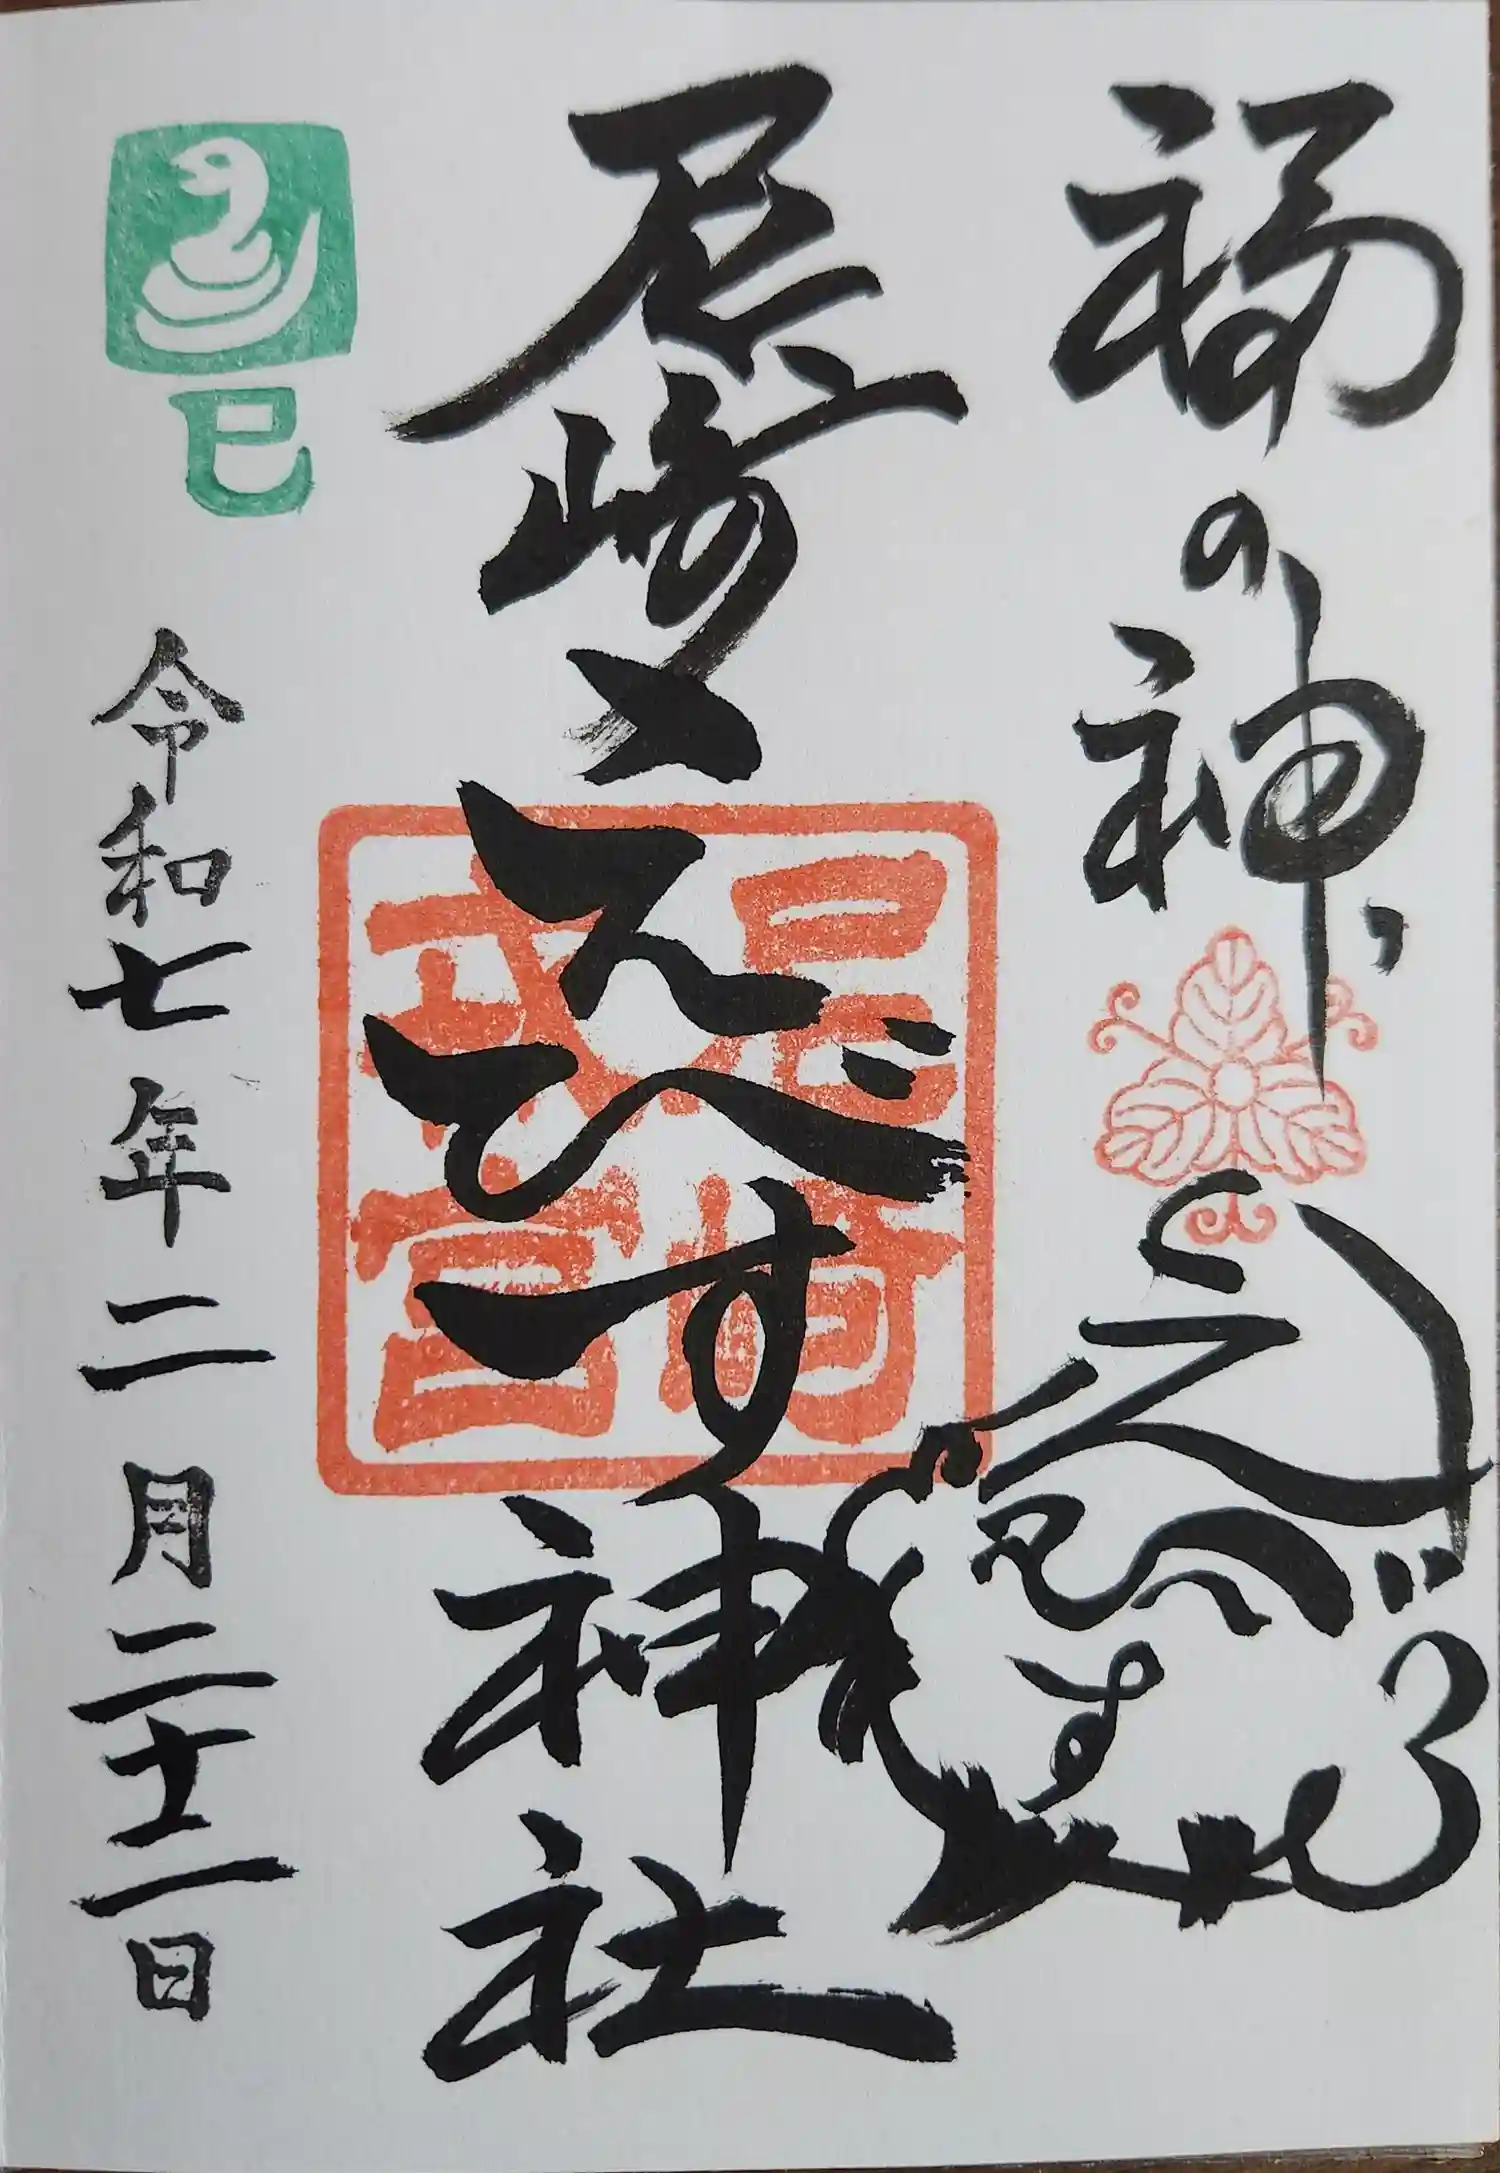 福の神
えびす
尼崎えびす神社
尼崎戎宮
巳
令和七年二月二十二日